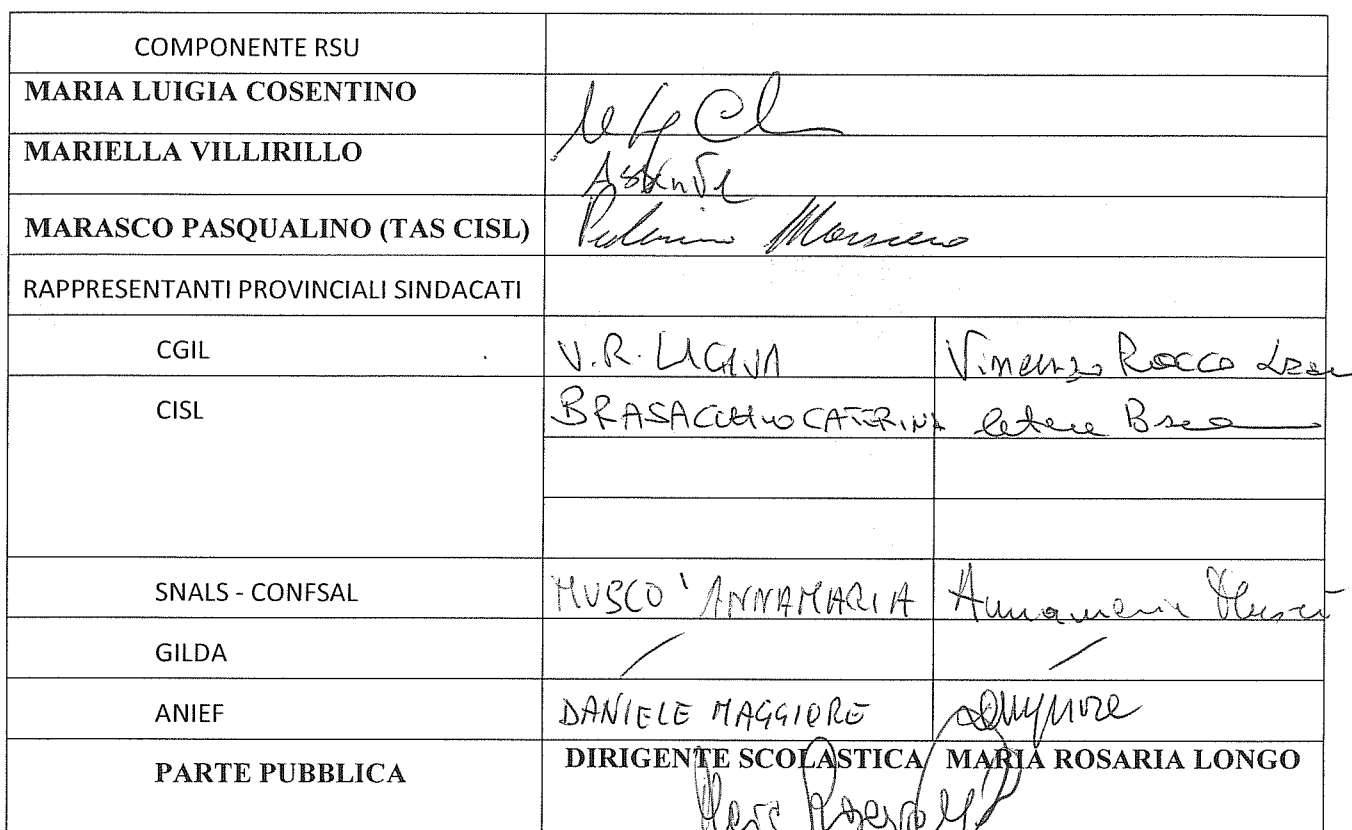 COMPONENTE RSU
MARIA LUIGIA COSENTINO
MARIELLA VILLIRILLO
Assente
MARASCO PASQUALINO (TAS CISL)
RAPPRESENTANTI PROVINCIALI SINDACATI
CGIL V.R. Vincenzo Rocco
CISL BRASACCHIO CATERINA
SNALS - CONFSAL MUSCO' ANNAMARIA Annamaria Muscò
GILDA / /
ANIEF DANIELE MAGGIORE
PARTE PUBBLICA DIRIGENTE SCOLASTICA MARIA ROSARIA LONGO